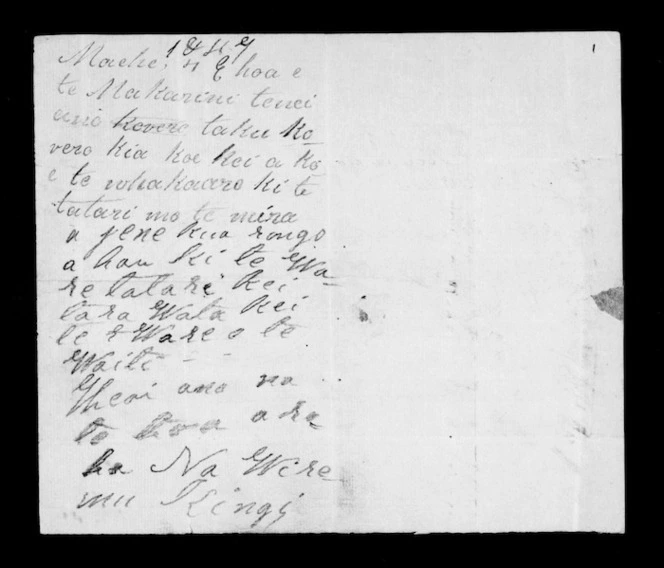 1847 1
Maehe, 4 E hoa e
te Makarini tenei
ano kovero taku ko
vero kia koe kei a ko
e te whakaaro ki te
tatari mo te mira
a jene kua rongo
a hau ki te Wa-
re tatari kei
tara Wata kei
te Ware o te
Waiti
Heoi ano na
to hoa aro
ha Na Wire
mu Kingi